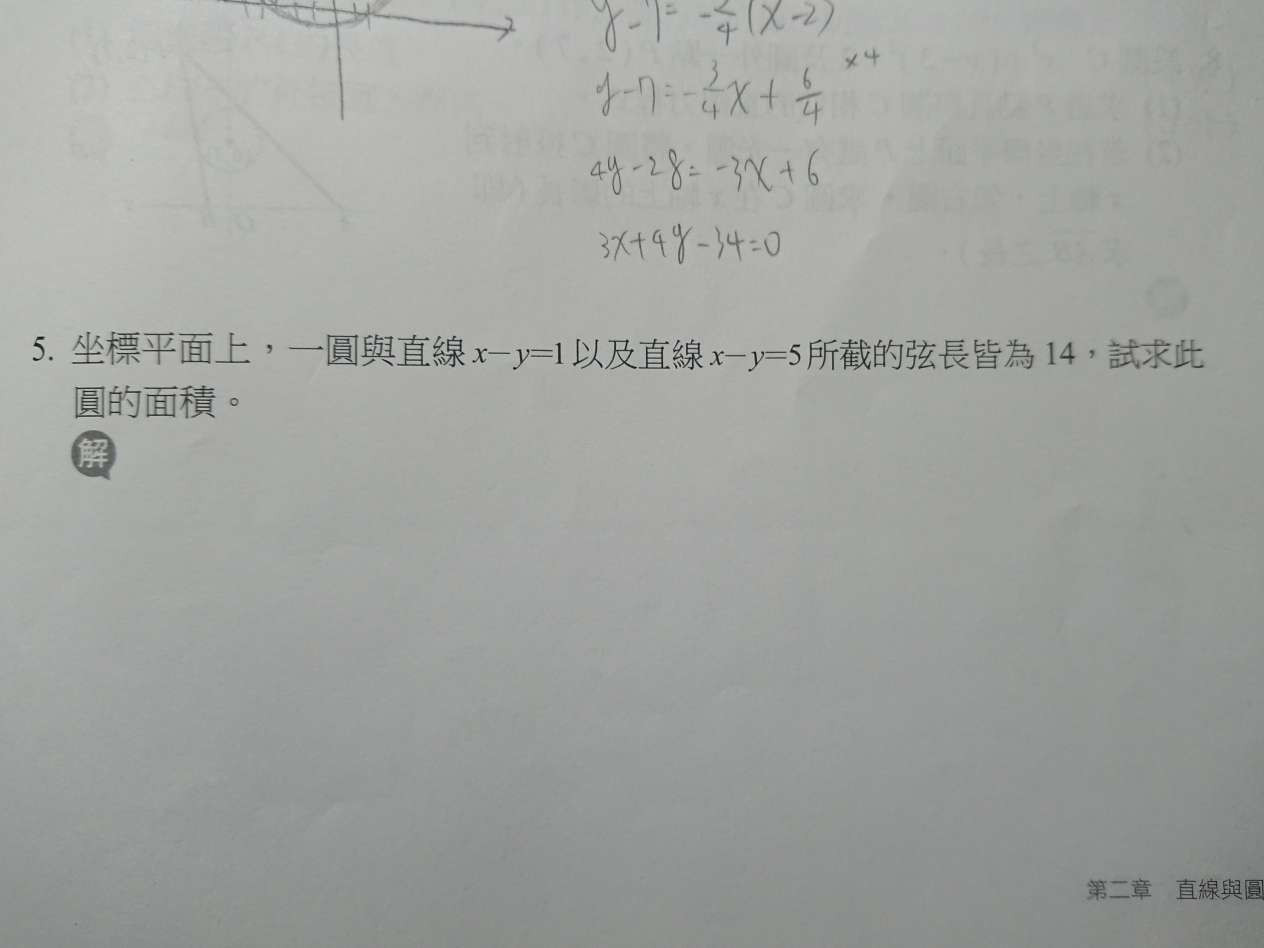 y-7=-3/4(x-2)
y-7=-3/4x+6/4 ×4
4y-28=-3x+6
3x+4y-34=0
5. 坐標平面上，一圓與直線 x－y=1 以及直線 x－y=5 所截的弦長皆為 14，試求此
圓的面積。
解
第二章 直線與圓